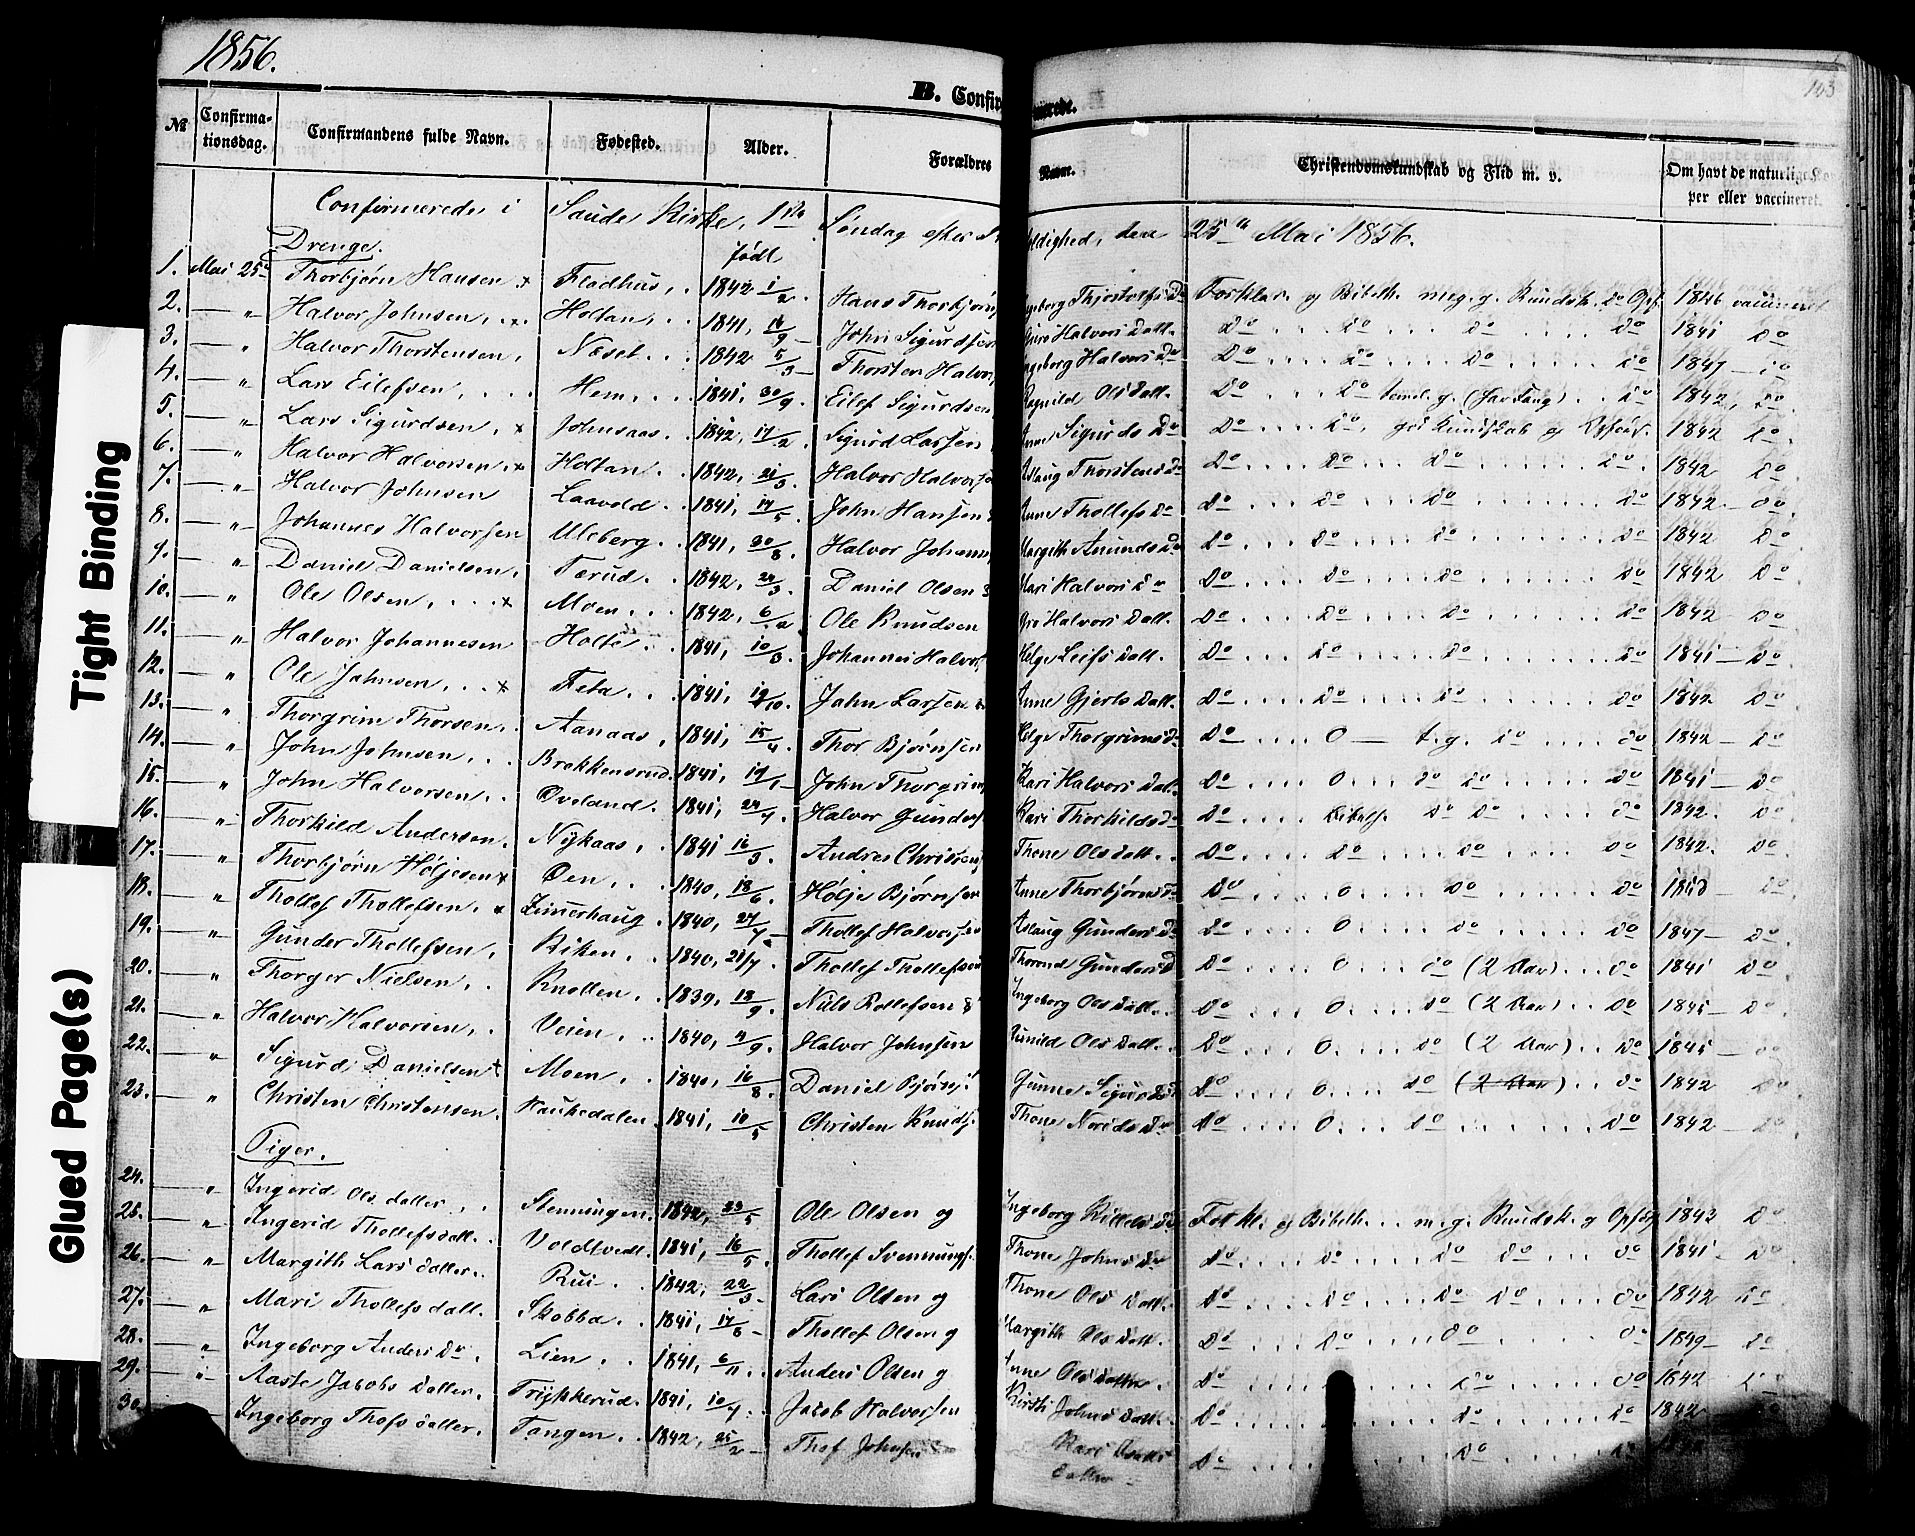 1856.
103
B. Confir
merede.
Tight Binding
Glued Page(s)
№ Confirmationsdag. Confirmandens fulde Navn. Fødested. Alder. Forældres Navn. Christendomskundskab og Flid m. v. Om havt de naturlige Kopper eller vaccineret.
Confirmerede i Saude Kirke, 1ste Søndag efter ldighed, den 25de Mai 1856.
Drenge. født
1. Mai 25de Thorbjørn Hansen x Flodhus, 1842 1/2 Hans Thorbjørns geborg Thjostolfs Do Forklar. og Bibelh. meg. g. Kundsk. Do Opf. 1846 vaccineret
2. — " Halvor Johnsen, x Holtan, 1841, 14/9 John Sigurdsen Guro Halvors Datt. Do Do Do Do 1841 Do
3. — " Halvor Thorstensen, Næset 1842 5/3 Thorsten Halvors ngeborg Halvors Do Do Do Do Do 1847 — Do
4. — " Lars Eilefsen, Hem 1841, 30/9 Eilef Sigurdsen Ragnild Ols Datt. Do Do temel. g. Do 1842, Do
5. — " Lars Sigurdsen, x Johnsaas 1842, 17/2 Sigurd Larsen Anne Sigurds Do Do Do, god Kundskab og Opførs. 1842 Do
6. — " Halvor Halvorsen x Holtan 1842, 21/3 Halvor Halvors Aslaug Thorstens Do Do Do Do Do 1842 Do
7. — " Halvor Johnsen Laavold 1841, 17/5 John Hansen Anne Thollefs Do Do Do Do Do 1842 — Do
8. — " Johannes Halvorsen Uleberg 1841, 30/8 Halvor Johann Margith Amunds Do Do Do Do Do 1842 Do
9. — " Daniel Danielsen, Torud 1842, 24/3 Daniel Olsen Mari Halvors Do Do Do Do Do 1842 Do
10. — " Ole Olsen, x Moen 1842, 6/2 Ole Knudsen Gro Halvors Datt. Do Do Do Do 1842 Do
11. — " Halvor Johannesen Holte 1841, 10/3 Johannes Halvors Helge Leifs Datt. Do Do Do Do 1841 — Do
12. — " Ole Johnsen, x Feta 1841, 19/10 John Larsen Anne Gjerts Datt. Do Do Do Do 1842 Do
13. — " Thorgrim Thorsen, Aanaas, 1841, 15/4 Thor Bjørnsen Helge Thorgrims Do Do 0 — t. g. Do Do 1842 — Do
14. — " John Johnsen, Brekkensrud 1841, John Thorgrim Kari Halvors Dat. Do 0 Do Do Do 1841 — Do
15. — " John Halvorsen Øveland 1841, 24/7 Halvor Gunders Kari Thorkilds Do Do Bibelh. Do Do Do 1842. Do
16. — " Thorkild Andersen, Nykaas, 1841 16/3 Andres Christens Thone Ols Datt. Do Do Do Do 1842. Do
17. — " Thorbjørn Høljesen x Øen 1840, 18/6 Hølje Bjørnsen Anne Thorbjørns Do Do 0 Do Do Do
18. — " Thollef Thollefsen, x Zimerhaug 1840, 27/7 Thollef Halvorsen Aslaug Gunders D Do 0 Do Do 1847 — Do
19. — " Gunder Thollefsen, Birken 1840, 21/7 Thollef Thollefsen Thorond Gunders D Do 0 Do (2 Aar) Do 1841 Do
20. — " Thorger Nielsen, Knollen 1839, 18/9 Niels Rollefsen Ingeborg Ols Datt. Do 0 Do (2 Aar) Do 1845 — Do
21. — " Halvor Halvorsen, Veien, 1840, 4/9 Halvor Johnsen Gunild Ols Datt. Do 0 Do (2 Aar) Do 1845 — Do
22. — " Sigurd Danielsen x Moen, 1840, 16/8 Daniel Bjørns Gunne Sigurds Do Do 0 Do (2 Aar) Do 1842 Do
23. — " Christen Christensen Haukedalen 1841, 10/5 Christen Knuds Thone Nerids Do Do 0 Do Do 1842 — Do
Piger.
24. — " Ingerid Ols datter Stenningen 1842, 23/5 Ole Olsen og Ingeborg Killels Do Forkl. og Bibelh. m. g. Kundsk. g Opførs 1843 Do
25. — " Ingerid Thollefsdatt. Voldtvedt 1841, 16/5 Thollef Svennungs Thone Johns Do Do Do Do Do Do 1841 — Do
26. — " Margith Lars datter Rui 1842, 22/3 Lars Olsen og Thone Ols Datt. Do Do Do Do Do 1842 Do
27. — " Mari Thollefs datt. Skobba 1841, 17/6 Thollef Olsen og Margith Ols Datt. Do Do Do Do 1849 — Do
28. — " Ingeborg Anders Do Lien 1841, 6/11 Anders Olsen og Anne Ols datter Do Do Do 1842 Do
29. — " Aaste Jacobs datter, Trykkerud 1841, 10/7 Jacob Halvorsen Kirsti Johns Datt. Do Do Do 1842 Do
30 Ingeborg Thofs datter Tangen 1842, 25/2 Thof Johnsen Kari datter Do Do Do